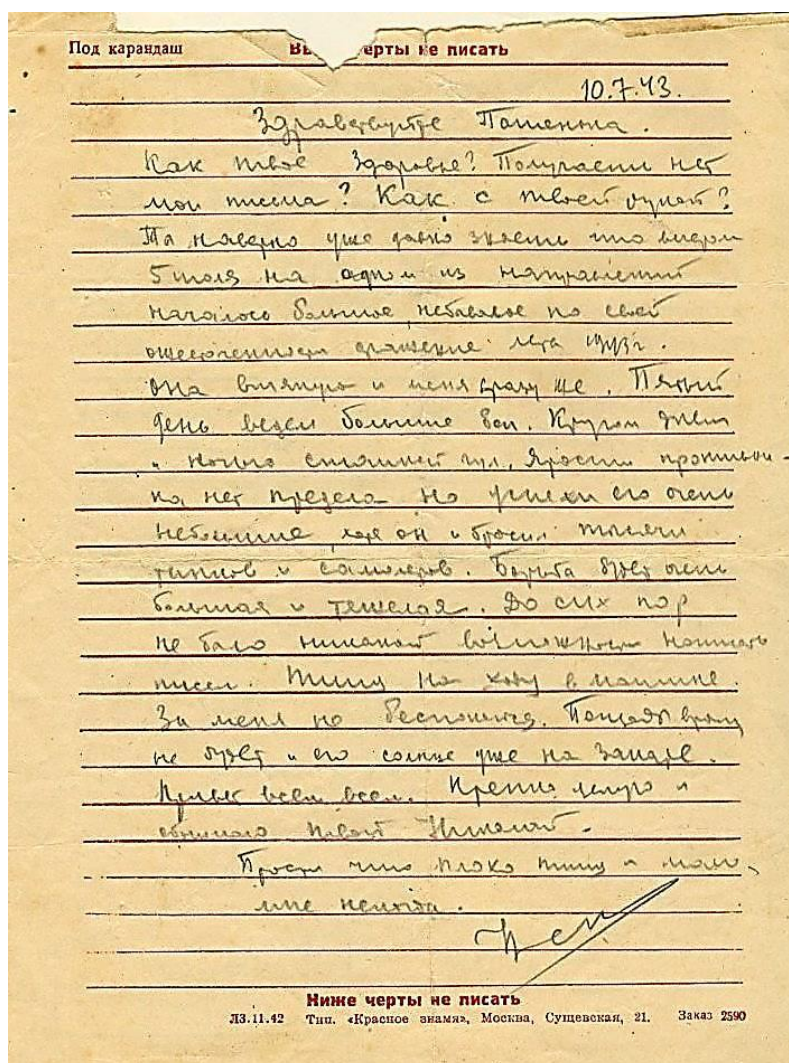 Под карандаш
Вы ерты не писать
10.7.43.
Здравствуйте Пашенька.
Как твое здоровье? Получаешь нет
мои письма? Как с твоей
Та наверно уже давно знаешь что
5 июля на одном из направлений
началось большое, небывалое по своей
ожесточенности сражение лета 1943 г.
она втянуло и меня сразу же. Пятый
день ведем большие бои. Кругом днем
и ночью сплошной гул. Ярости противни-
ка нет предела но успехи его очень
небольшие, хотя он и бросил тысячи
танков и самолетов. Борьба будет очень
большая и тяжелая. До сих пор
не было никакой возможности написать
писем. Пишу на ходу в машине.
За меня не беспокойся. Пощады врагу
не будет и его солнце уже на закате.
Привет всем всем. Крепко целую и
обнимаю Николай.
Прости что плохо пишу и мало,
мне
Ниже черты не писать
Л3.11.42 Тип. «Красное знамя», Москва, Сущевская, 21. Заказ 2590